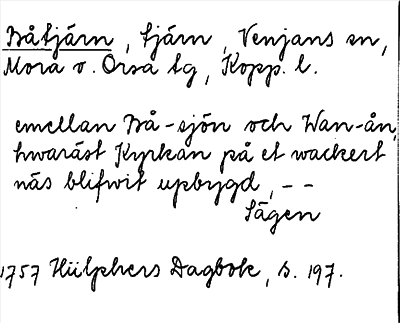 Båtjärn, tjärn, Venjans sn,
Mora o. Orsa tg, Kopp. l.
emellan Bå-sjön och Wan-ån,
hwaräst Kyrkan på et wackert
näs blifwit upbygd, --
Sägen
1757 Hülphers Dagbok, s. 197.